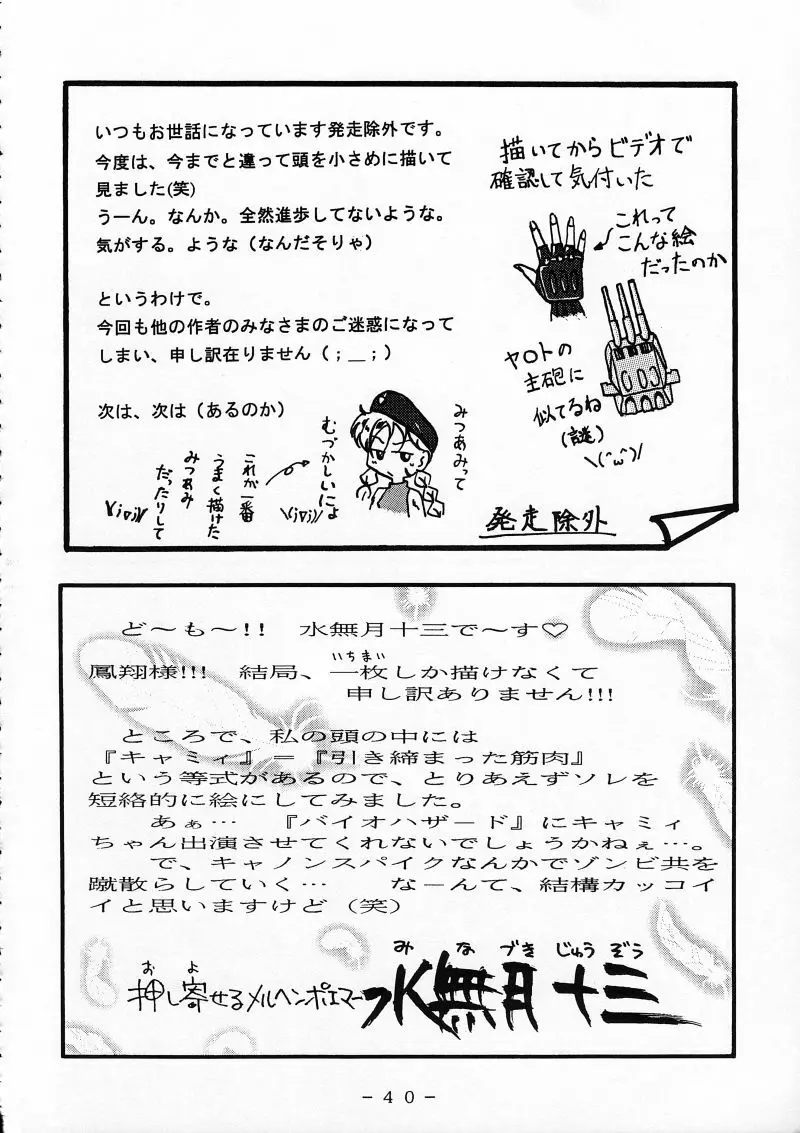 いつもお世話になっています発走除外です。
今度は、今までと違って頭を小さめに描いて
見ました(笑)
うーん。なんか。全然進歩してないような。
気がする。ような（なんだそりゃ）
というわけで。
今回も他の作者のみなさまのご迷惑になって
しまい、申し訳在りません（；＿；）
次は、次は（あるのか）
描いてからビデオで
確認して気付いた
これって
こんな絵
だったのか
ヤロトの
主砲に
似てるね
(謎)
\(^ω^)/
みつあみって
むづかしいによ
\(j▽j)/
これが一番
うまく描けた
みつあみ
だったりして
発走除外
ど～も～!!　水無月十三で～す♡
いちまい
鳳翔様!!!　結局、一枚しか描けなくて
申し訳ありません!!!
ところで、私の頭の中には
『キャミィ』＝『引き締まった筋肉』
という等式があるので、とりあえずソレを
短絡的に絵にしてみました。
あぁ…　『バイオハザード』にキャミィ
ちゃん出演させてくれないでしょうかねぇ…。
で、キャノンスパイクなんかでゾンビ共を
蹴散らしていく…　なーんて、結構カッコイ
イと思いますけど（笑）
お　よ
押し寄せるメルヘンポエマー
み　な　づき　じゅう　ぞう
水無月十三
－４０－